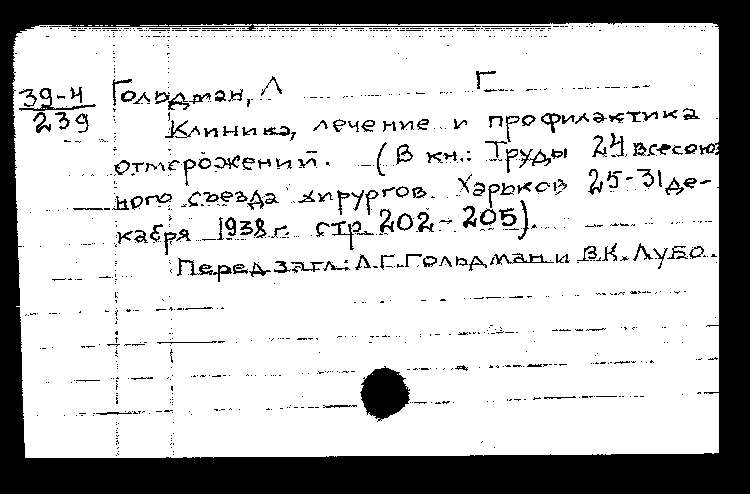 39-4
239
Гольдман, Л Г
Клиника, лечение и профилактика
отморожений. (В кн.: Труды 24 всесоюз
ного съезда хирургов. Харьков 25-31 де-
кабря 1938 г. стр 202-205).
Перед загл.: Л.Г. Гольдман и В.К. Лубо.